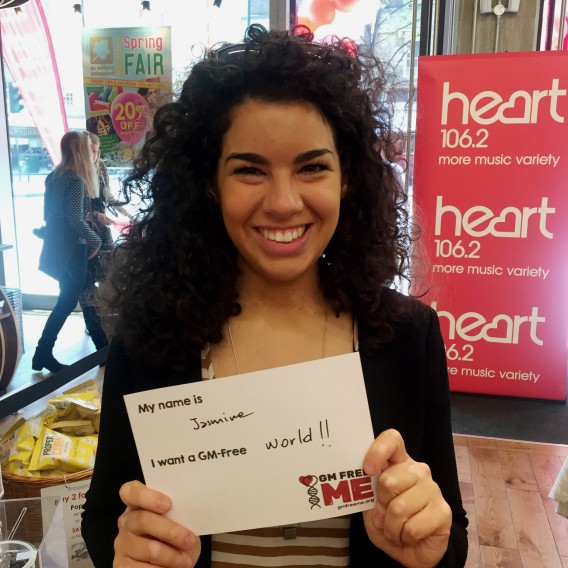 Spring
FAIR
20%
OFF
heart
106.2
more music variety
heart
106.2
more music variety
heart
6.2
more music variety
My name is
Jasmine
I want a GM-Free world!!
GM FREE
ME
gmfreeme.org
PROPER
Buy 2 fo
Pop